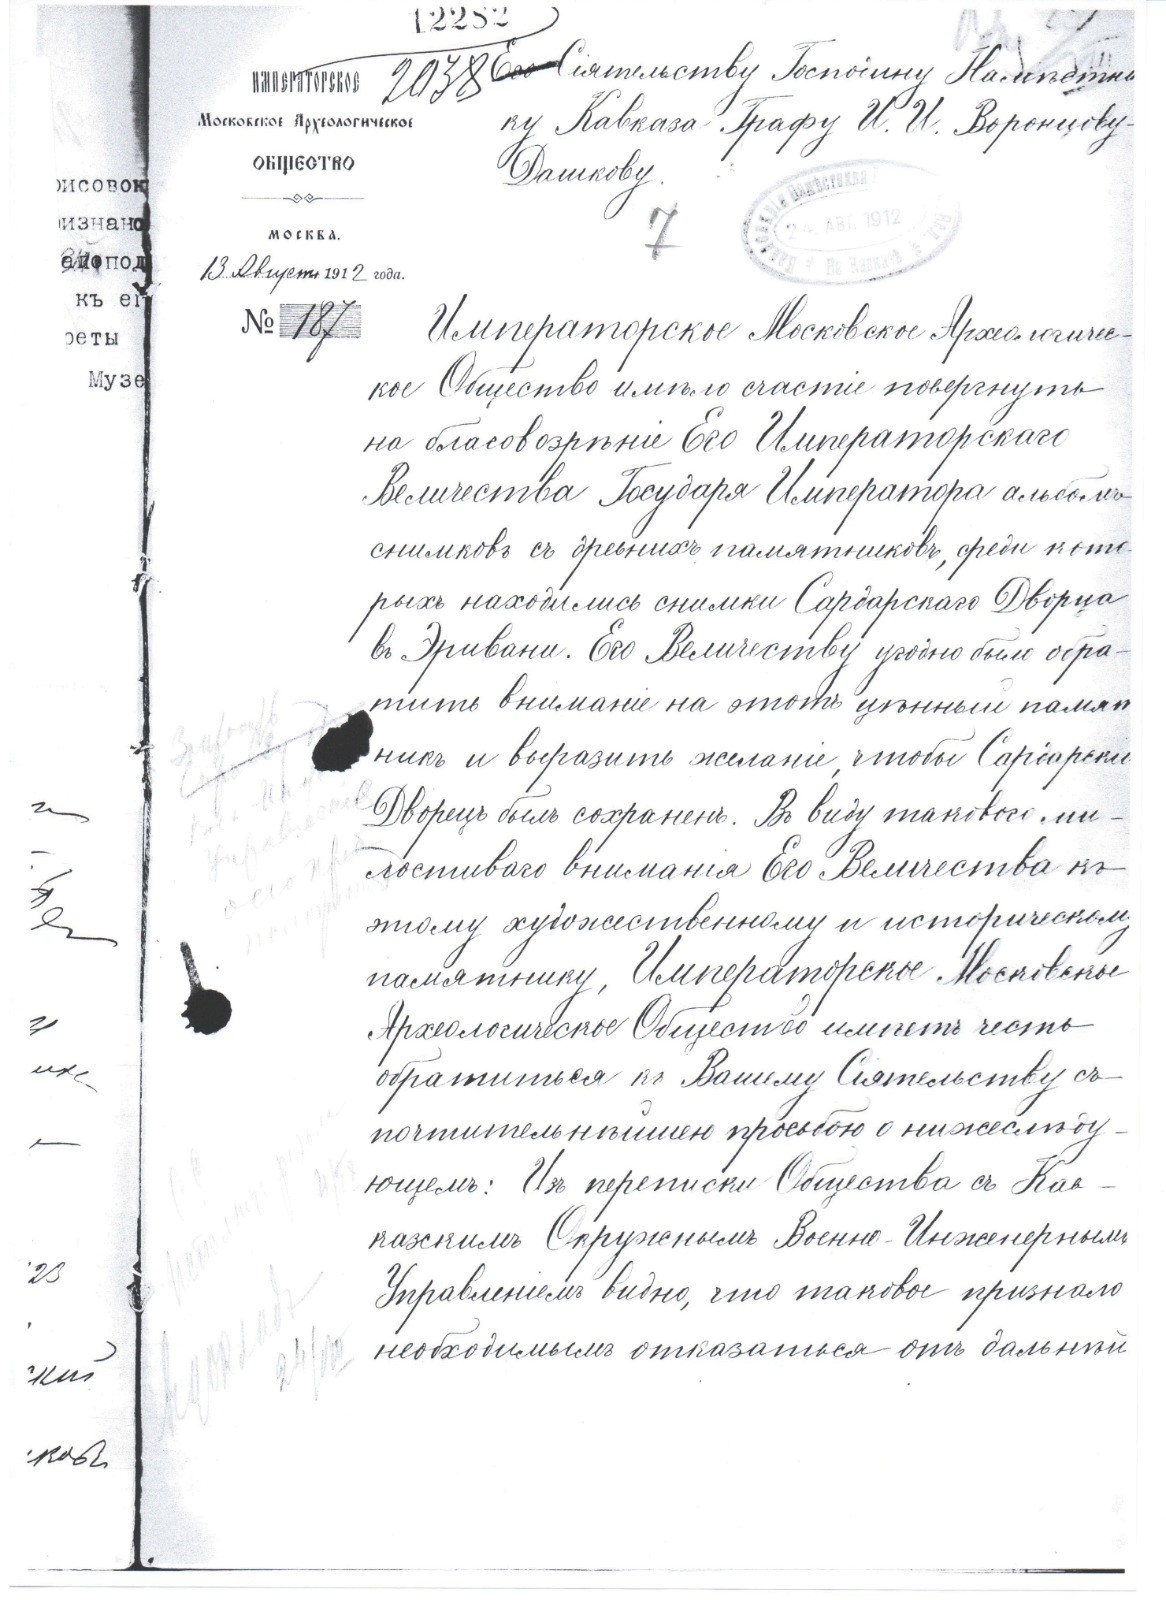 12282
2038
ИМПЕРАТОРСКОЕ
Московское Археологическое
ОБЩЕСТВО
МОСКВА.
13 Августа 1912 года.
№ 187
Его Сіятельству Господину Намѣстни
ку Кавказа Графу И. И. Воронцову-
Дашкову.
7
24 АВГ. 1912
Императорское Московское Археологичес-
кое Общество имѣло счастіе повергнуть
на благовозрѣніе Его Императорскаго
Величества Государя Императора альбомъ
снимковъ съ древнихъ памятниковъ, среди кото-
рыхъ находились снимки Сардарскаго Дворца
въ Эривани. Его Величеству угодно было обра-
тить вниманіе на этотъ цѣнный памят
никъ и выразить желаніе, чтобы Сардарскій
Дворецъ былъ сохраненъ. Въ виду таковаго ми-
лостиваго вниманія Его Величества къ
этому художественному и историческому
памятнику, Императорское Московское
Археологическое Общество имѣетъ честь
обратиться къ Вашему Сіятельству съ
почтительнѣйшею просьбою о нижеслѣду-
ющемъ: Изъ переписки Общества съ Кав-
казскимъ Окружнымъ Военно-Инженернымъ
Управленіемъ видно, что таковое признало
необходимымъ отказаться отъ дальнѣй
рисовок
изнано
къ ег
реты
Музе